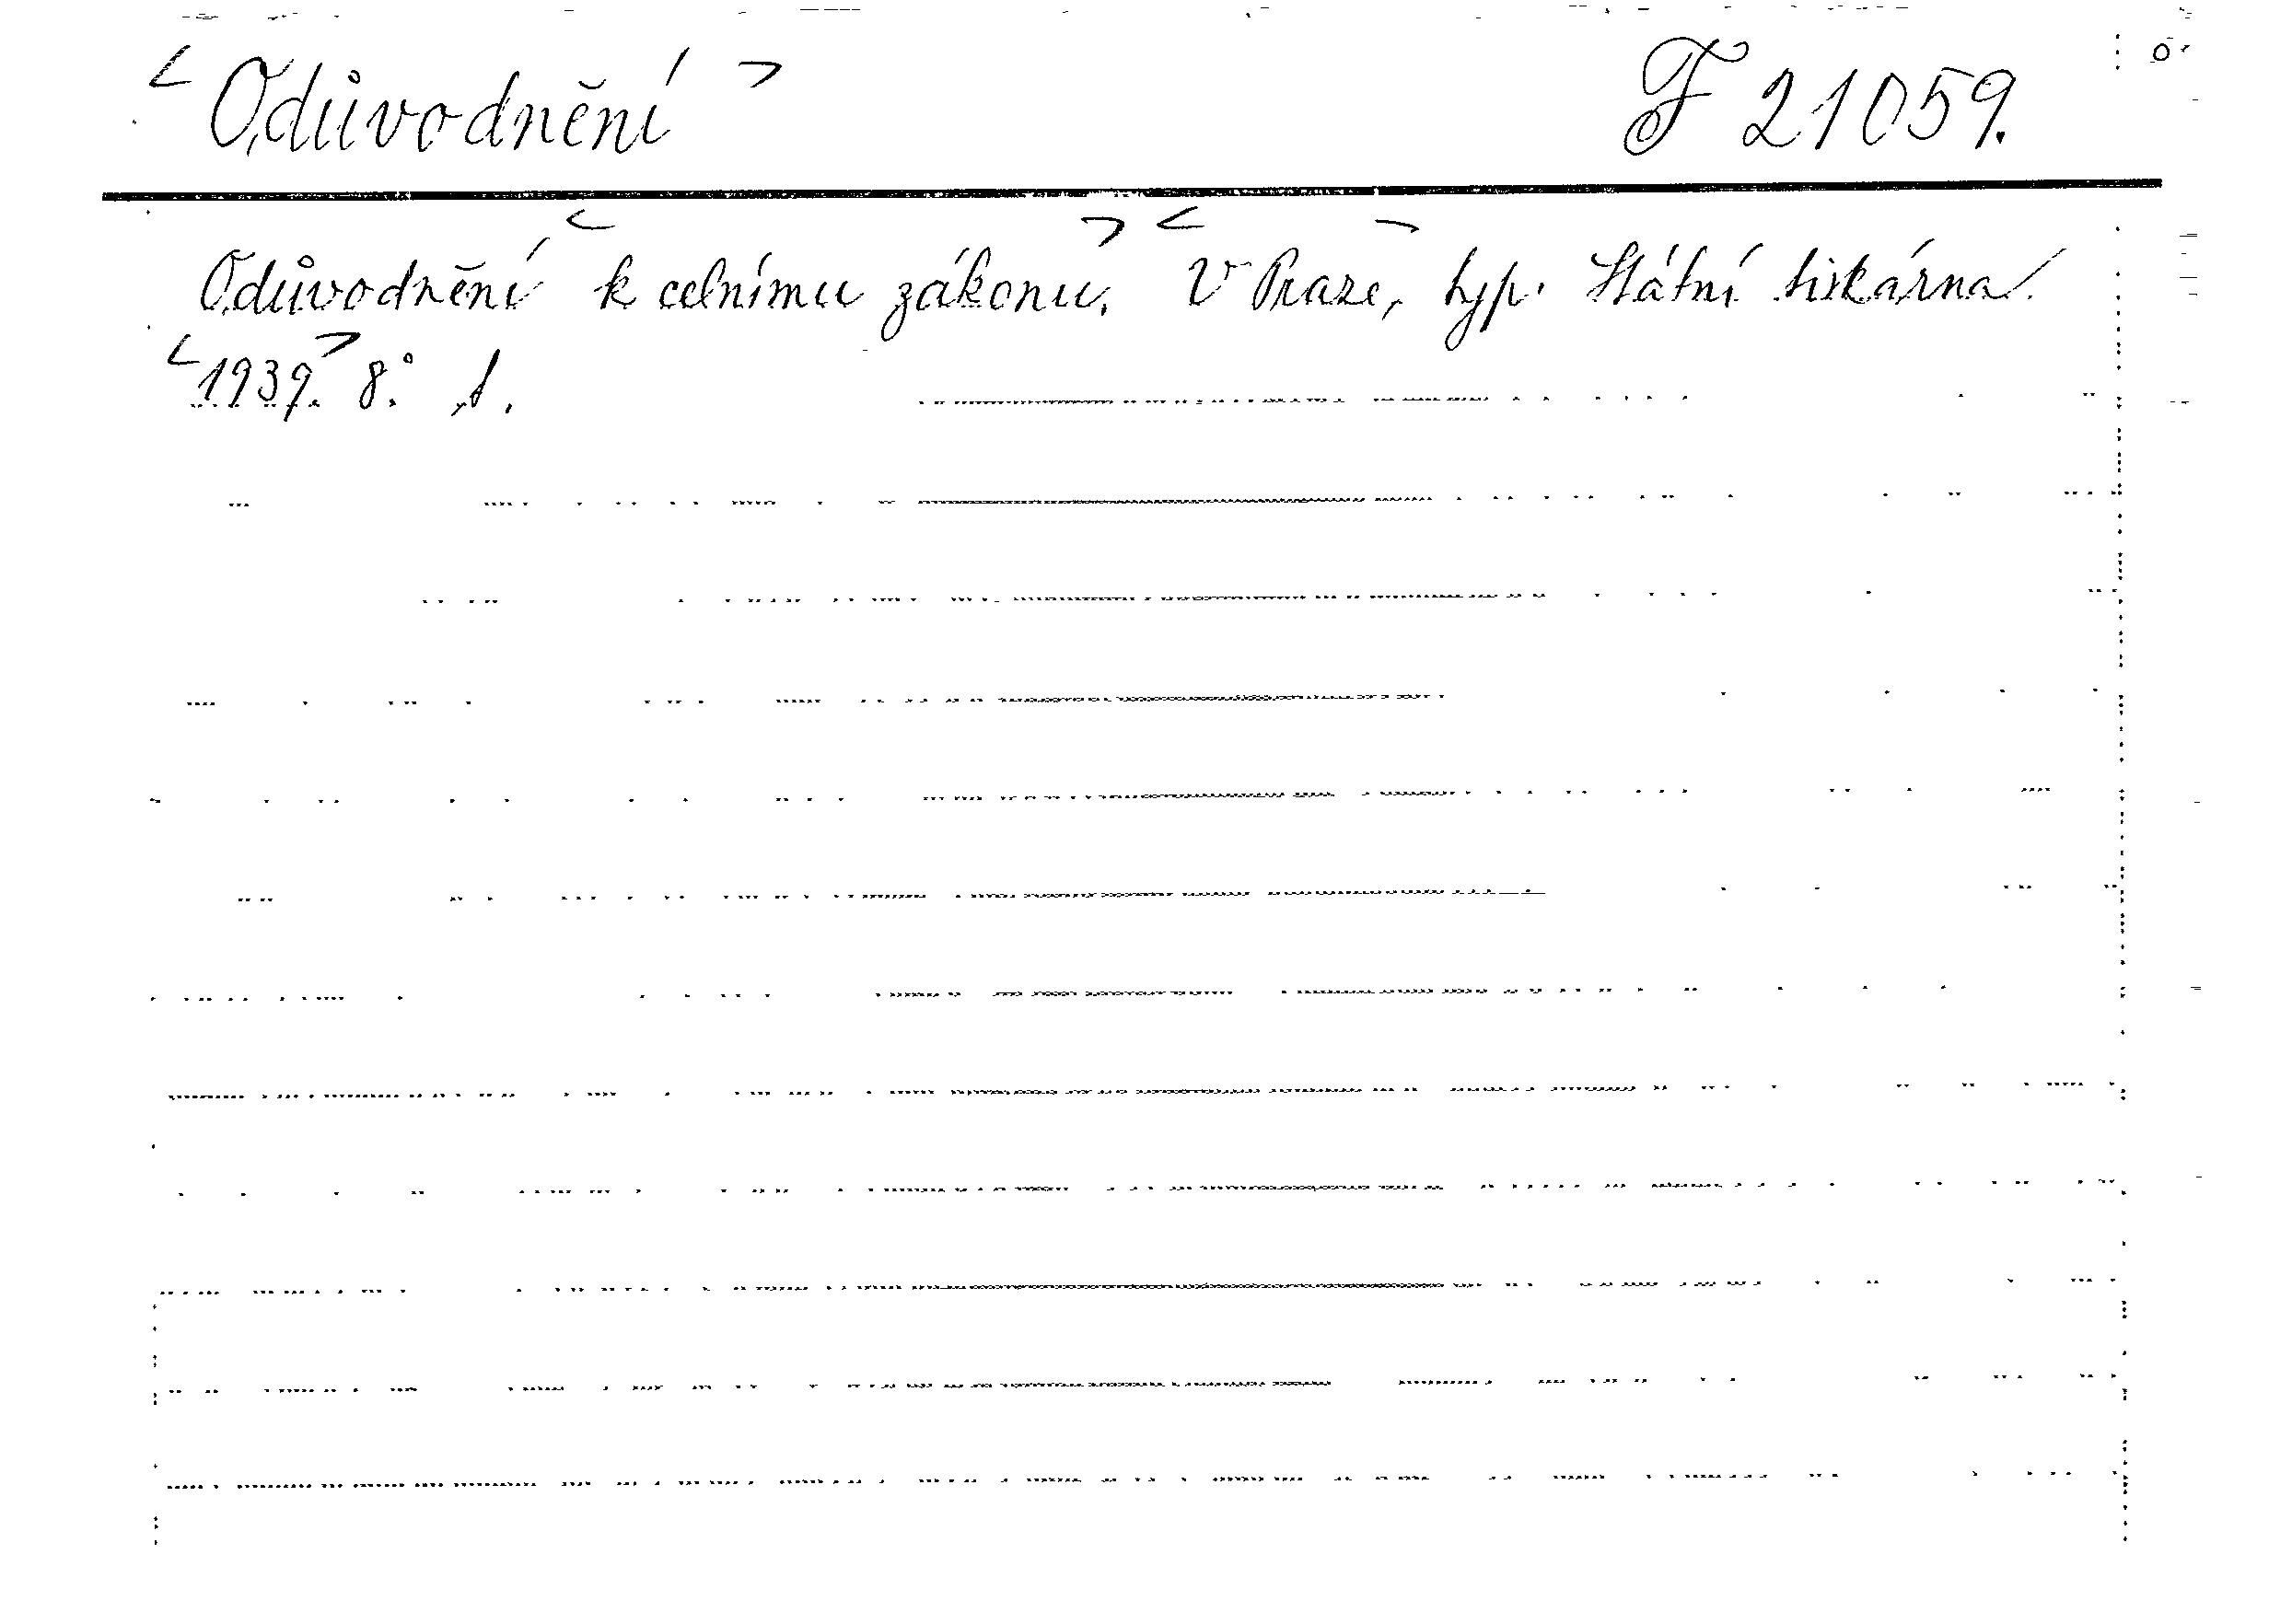 <Odůvodnění> F 21059.
Odůvodnění <k celnímu zákonu.> <V Praze, typ. Státní tiskárna.
<1939.> 8°